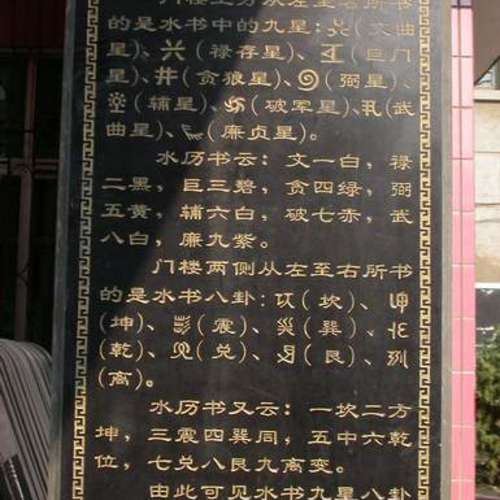 门楼上方从左至右所书
的是水书中的九星:(文曲
星)、(禄存星)、(巨门
星)、(贪狼星)、(弼星)、
(辅星)、(破军星)、(武
曲星)、(廉贞星)。
水历书云:文一白,禄
二黑,巨三碧,贪四绿,弼
五黄,辅六白,破七赤,武
八白,廉九紫。
门楼两侧从左至右所书
的是水书八卦:(坎)、
(坤)、(震)、(巽)、
(乾)、(兑)、(艮)、
(离)。
水历书又云:一坎二方
坤,三震四巽同,五中六乾
位,七兑八艮九离变。
由此可见水书九星八卦